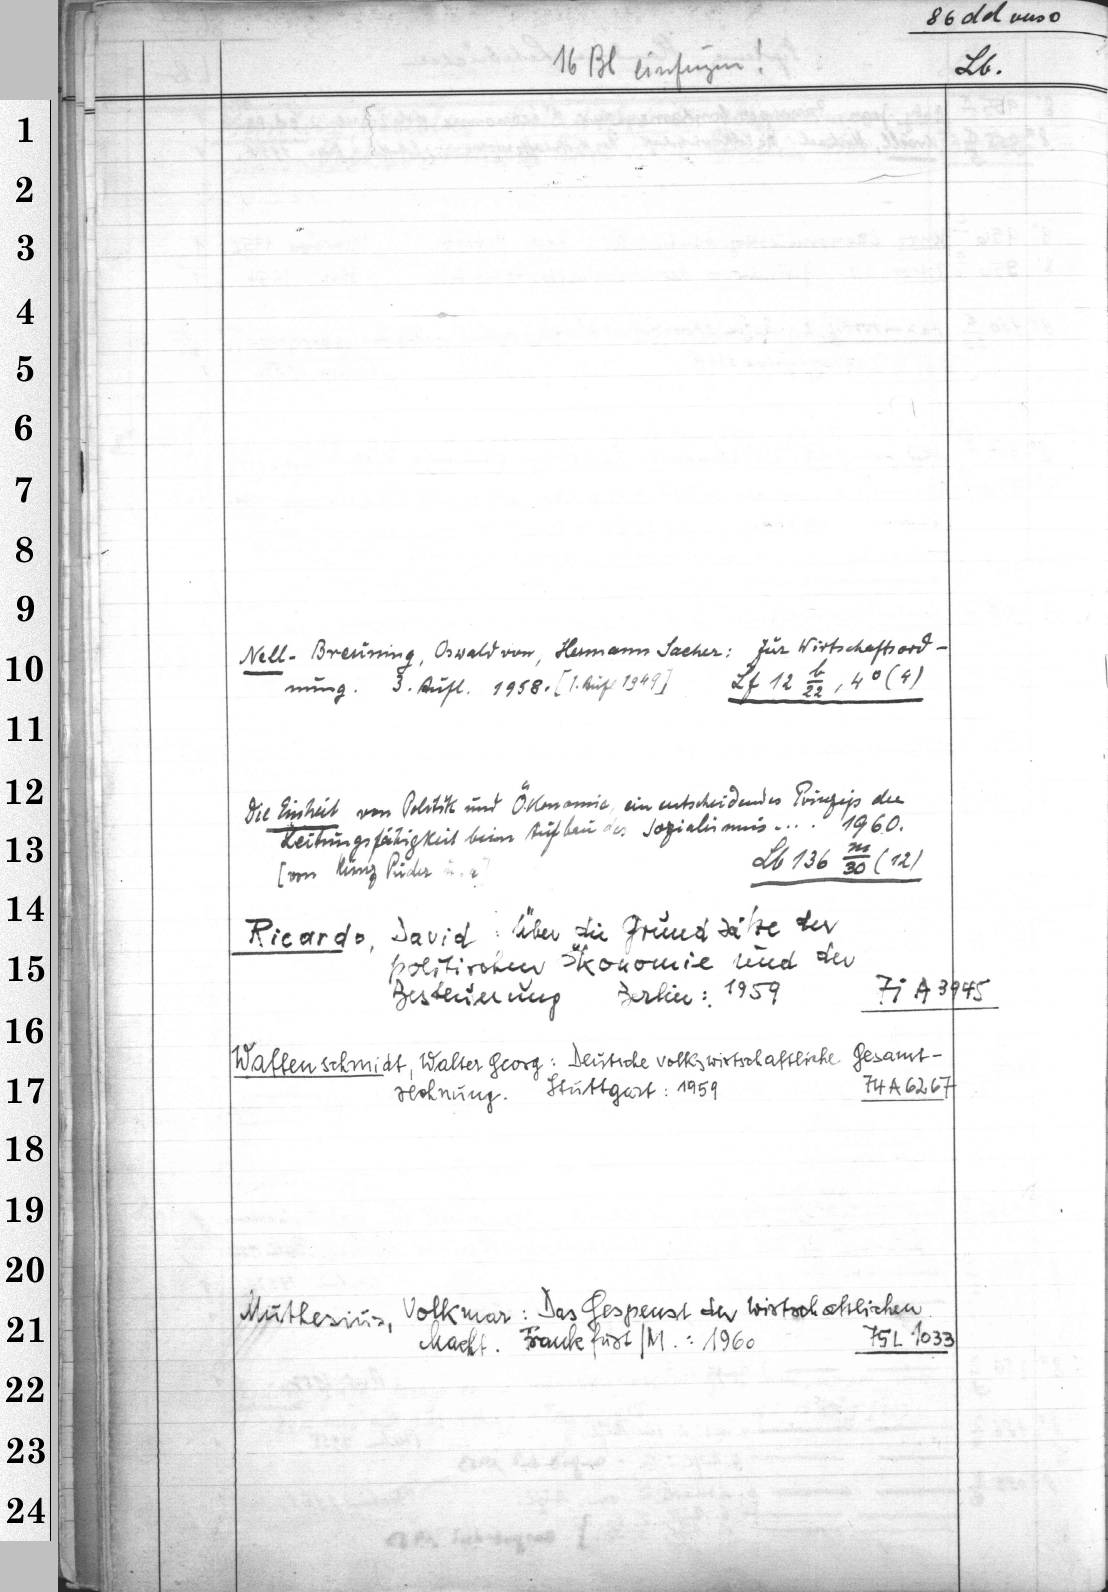 86 dd verso
16 Bl einfügen!
Lb.
1
2
3
4
5
6
7
8
9
Nell-Breuning, Oswald von, Hermann Sacher: Zur Wirtschaftsord-
10
nung. 3. Aufl. 1958. [1. Aufl 1949] Lf 12 b/22, 4° (4)
11
12
Die Einheit von Politik und Ökonomie, ein entscheidendes Prinzip der
Leitungsfähigkeit beim Aufbau des Sozialismus.... 1960.
13
[von Künz Püder u. a] Lb 136 m/30 (12)
14
Ricardo, David: Über die Grundsätze der
15
politischen Ökonomie und der
Besteuerung Berlin: 1959 7i A 3945
16
Waffenschmidt, Walter Georg: Deutsche volkswirtschaftliche Gesamt-
17
rechnung. Stuttgart: 1959 74 A 6267
18
19
20
Muthesius, Volkmar: Das Gespenst der wirtschaftlichen
21
Macht. Frankfurt/M.: 1960 75 L 1033
22
23
24